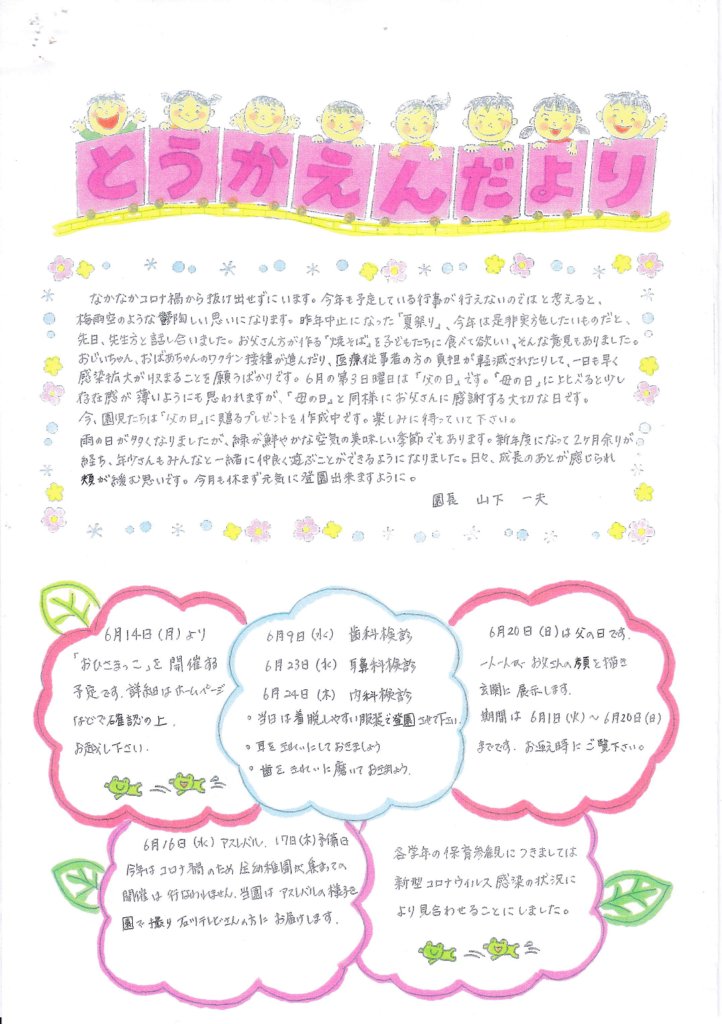 とうかえんだより
なかなかコロナ禍から抜け出せずにいます。今年も予定している行事が行えないのではと考えると、
梅雨空のような鬱陶しい思いになります。昨年中止になった「夏祭り」、今年は是非実施したいものだと、
先日、先生方と話し合いました。お父さん方が作る「焼そば」を子どもたちに食べて欲しい、そんな意見もありました。
おじいちゃん、おばあちゃんのワクチン接種が進んだり、医療従事者の方の負担が軽減されたりして、一日も早く
感染拡大が収まることを願うばかりです。6月の第3日曜日は「父の日」です。「母の日」に比べると少し
存在感が薄いようにも思われますが、「母の日」と同様にお父さんに感謝する大切な日です。
今、園児たちは「父の日」に贈るプレゼントを作成中です。楽しみに待っていて下さい。
雨の日が多くなりましたが、緑が鮮やかな空気の美味しい季節でもあります。新年度になって2ヶ月余りが
経ち、年少さんもみんなと一緒に仲良く遊ぶことができるようになりました。日々、成長のあとが感じられ
頬が緩む思いです。今月も休まず元気に登園出来ますように。
園長 山下 一夫
6月14日(月)より
「おひさまっこ」を開催する
予定です。詳細はホームページ
などで確認の上、
お越し下さい。
6月9日(水) 歯科検診
6月23日(水) 耳鼻科検診
6月24日(木) 内科検診
○ 当日は着脱しやすい服装で登園させて下さい。
○ 耳をきれいにしておきましょう
○ 歯をきれいに磨いておきましょう。
6月20日(日)は父の日です。
一人一人がお父さんの顔を描き
玄関に展示します。
期間は 6月1日(火)～6月20日(日)
までです。お迎え時にご覧下さい。
6月16日(水)アスレバル、17日(木)予備日
今年はコロナ禍のため全幼稚園が集まっての
開催は行なわれません。当園はアスレバルの様子を
園で撮り石川テレビさんの方にお届けします。
各学年の保育参観につきましては
新型コロナウイルス感染の状況に
より見合わせることにしました。